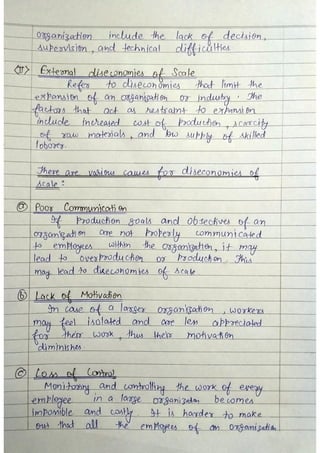 organization include the lack of decision,
supervision, and technical difficulties
(II) External diseconomies of Scale
Refer to diseconomies that limit the
expansion of an organization or industry. The
factors that act as restraint to expansion
include increased cost of production, scarcity
of raw materials, and low supply of skilled
laborer.
There are various causes for diseconomies of
scale:
(a) Poor Communication
If Production goals and Objectives of an
organization are not Properly communicated
to employees within the organization, it may
lead to overproduction or production. This
may lead to diseconomies of scale
(b) Lack of Motivation
In case of a larger organization, workers
may feel isolated and are less appreciated
for their work, thus their motivation
diminishes
(c) Loss of Control
Monitoring and controlling the work of every
employee in a large organization becomes
impossible and costly It is harder to make
out that all the employees of an organization